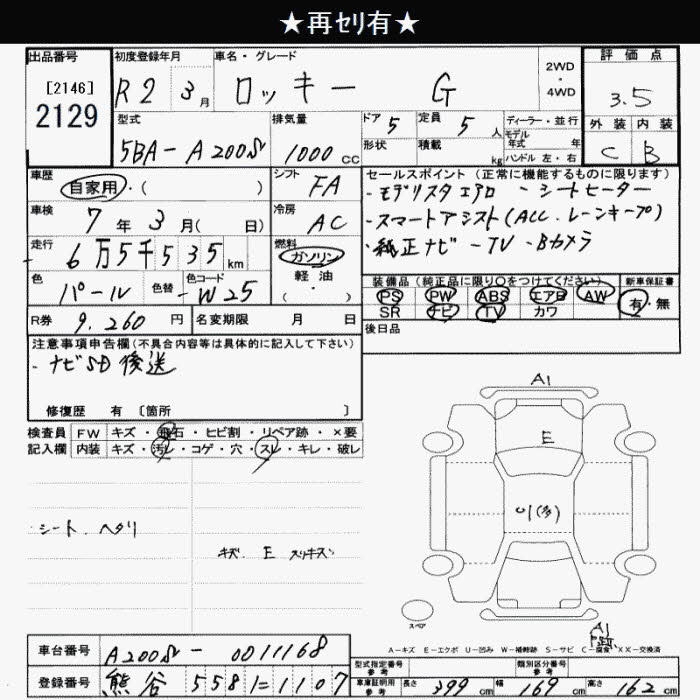 ★再ｾﾘ有★
出品番号
[2146]
2129
初度登録年月
R2 3月
車名・グレード
ロッキー G
2WD
・
4WD
評価点
3.5
外装 内装
C B
型式
5BA-A200S
排気量
1000cc
ドア 5
定員 5人
形状
積載 kg
ディーラー・並行
モデル年式 年
ハンドル 左・右
車歴
自家用・( )
シフト
FA
車検
7年3月( 日)
冷房
AC
走行
6万5千535km
燃料
ガソリン
軽油
( ・ )
色
パール
色替
色コード
W25
R券 9,260円
名変期限 月 日
セールスポイント(正常に機能するものに限ります)
・モデリスタエアロ ・シートヒーター
・スマートアシスト(ACC.レーンキープ)
・純正ナビ ・TV ・Bカメラ
装備品(純正品に限り○をつけてください)
PS PW ABS エアB AW
SR ナビ TV カワ
新車保証書
有・無
後日品
注意事項申告欄(不具合内容等は具体的に記入して下さい)
・ナビSD後送
修復歴 有〔箇所 〕
検査員記入欄
FW キズ・飛石・ヒビ割・リペア跡・×要
内装 キズ・汚レ・コゲ・穴・スレ・キレ・破レ
シート ヘタリ
キズ E スリキズ
A1
E
U1(多)
スペア
A1
A－キズ E－エクボ U－凹み W－補修跡 S－サビ C－腐食 XX－交換済
車台番号 A200S-0011168
登録番号 熊谷 558 に 1107
型式指定番号 参考
類別区分番号 参考
車庫証明用 参考 長さ 399cm 幅 169cm 高さ 162cm